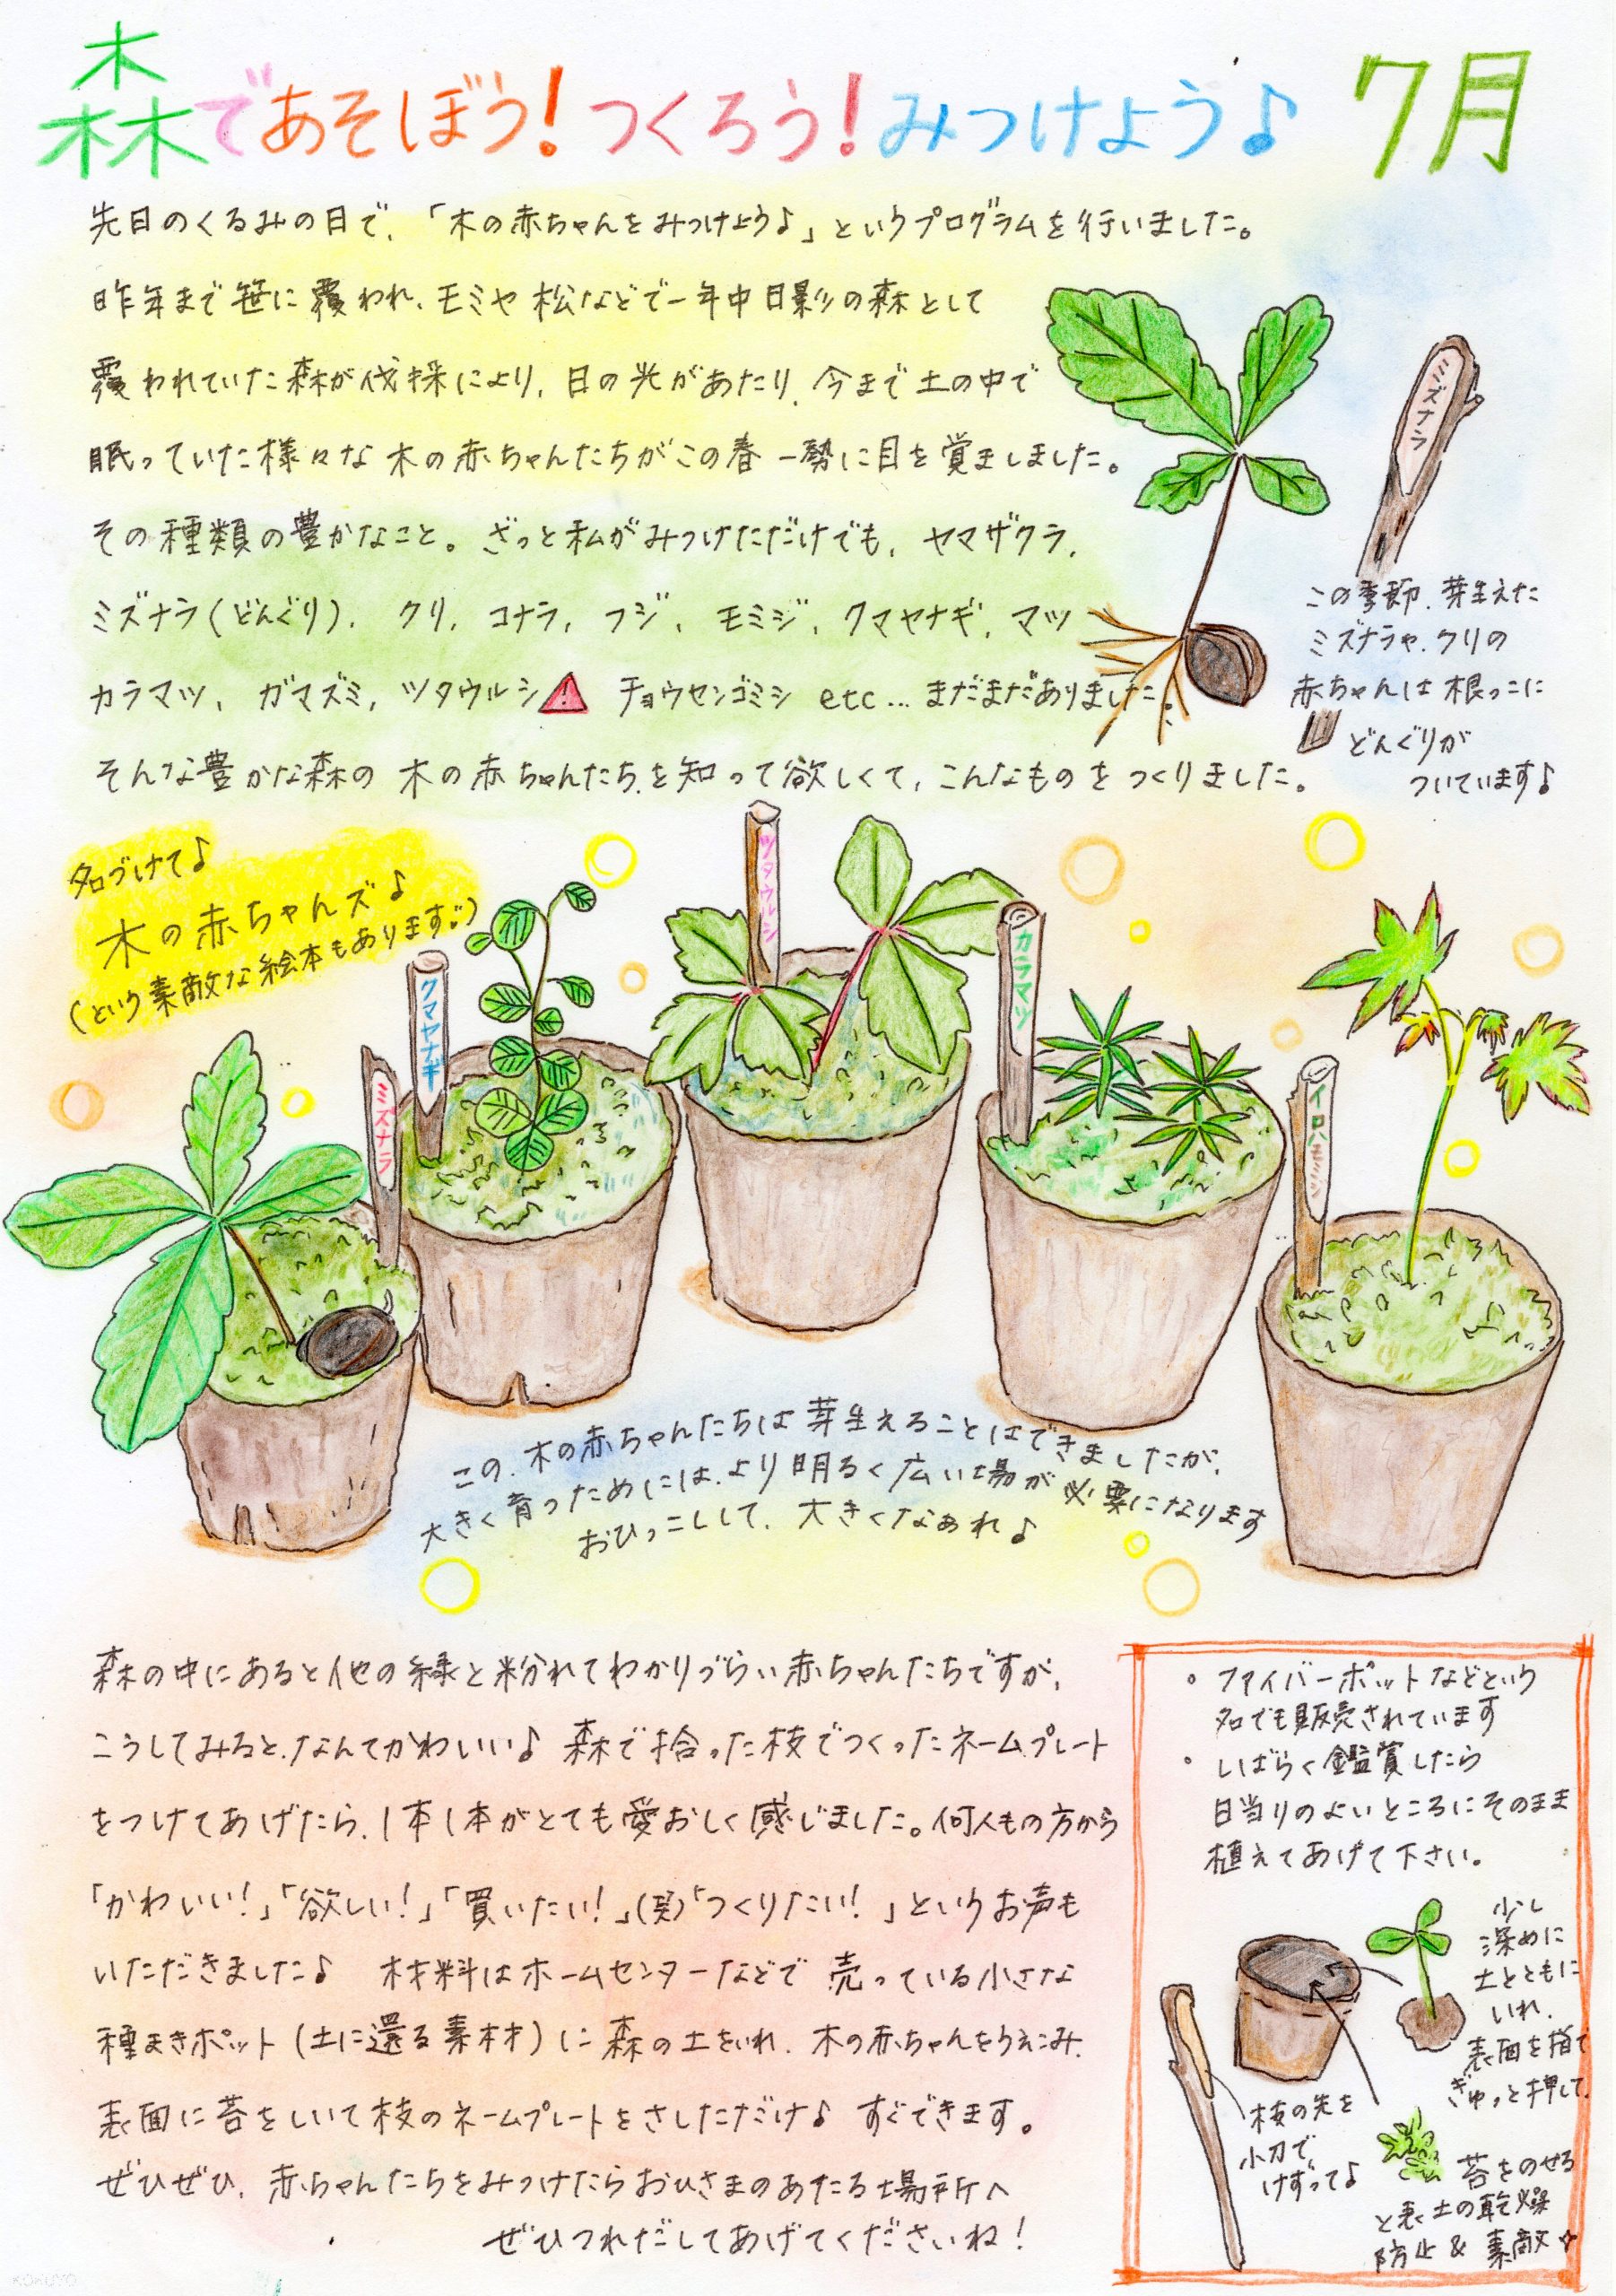 森であそぼう！つくろう！みつけよう♪ 7月
先日のくるみの日で、「木の赤ちゃんをみつけよう♪」というプログラムを行いました。
昨年まで笹に覆われ、モミや松などで一年中日影の森として
覆われていた森が伐採により、日の光があたり、今まで土の中で
眠っていた様々な木の赤ちゃんたちがこの春一勢に目を覚ましました。
その種類の豊かなこと。ざっと私がみつけただけでも、ヤマザクラ、
ミズナラ(どんぐり)、クリ、コナラ、フジ、モミジ、クマヤナギ、マツ
カラマツ、ガマズミ、ツタウルシ⚠ チョウセンゴミシ etc... まだまだありました。
そんな豊かな森の木の赤ちゃんたちを知って欲しくて、こんなものをつくりました。
ミズナラ
この季節、芽生えた
ミズナラや、クリの
赤ちゃんは根っこに
どんぐりが
ついています♪
名づけて♪
木の赤ちゃんズ♪
(という素敵な絵本もあります)
ミズナラ
クマヤナギ
ツタウルシ
カラマツ
この、木の赤ちゃんたちは芽生えることはできましたが、
大きく育つためには、より明るく広い場が必要になります
おひっこしして、大きくなあれ♪
森の中にあると他の緑と粉れてわかりづらい赤ちゃんたちですが、
こうしてみると、なんてかわいい♪ 森で拾った枝でつくったネームプレート
をつけてあげたら、1本1本がとても愛おしく感じました。何人もの方から
「かわいい！」「欲しい！」「買いたい！」(笑)「つくりたい！」というお声も
いただきました♪ 材料はホームセンターなどで売っている小さな
種まきポット(土に還る素材)に森の土をいれ、木の赤ちゃんをうえこみ、
表面に苔をしいて枝のネームプレートをさしただけ♪ すぐできます。
ぜひぜひ、赤ちゃんたちをみつけたらおひさまのあたる場所へ
ぜひつれだしてあげてくださいね！
・ファイバーポットなどという
名でも販売されています
・しばらく鑑賞したら
日当りのよいところにそのまま
植えてあげて下さい。
少し
深めに
土とともに
いれ、
表面を指で
ぎゅっと押して、
枝の先を
小刀で、
けずって♪
苔をのせる
と表土の乾燥
防止 & 素敵☆
KOKUYO